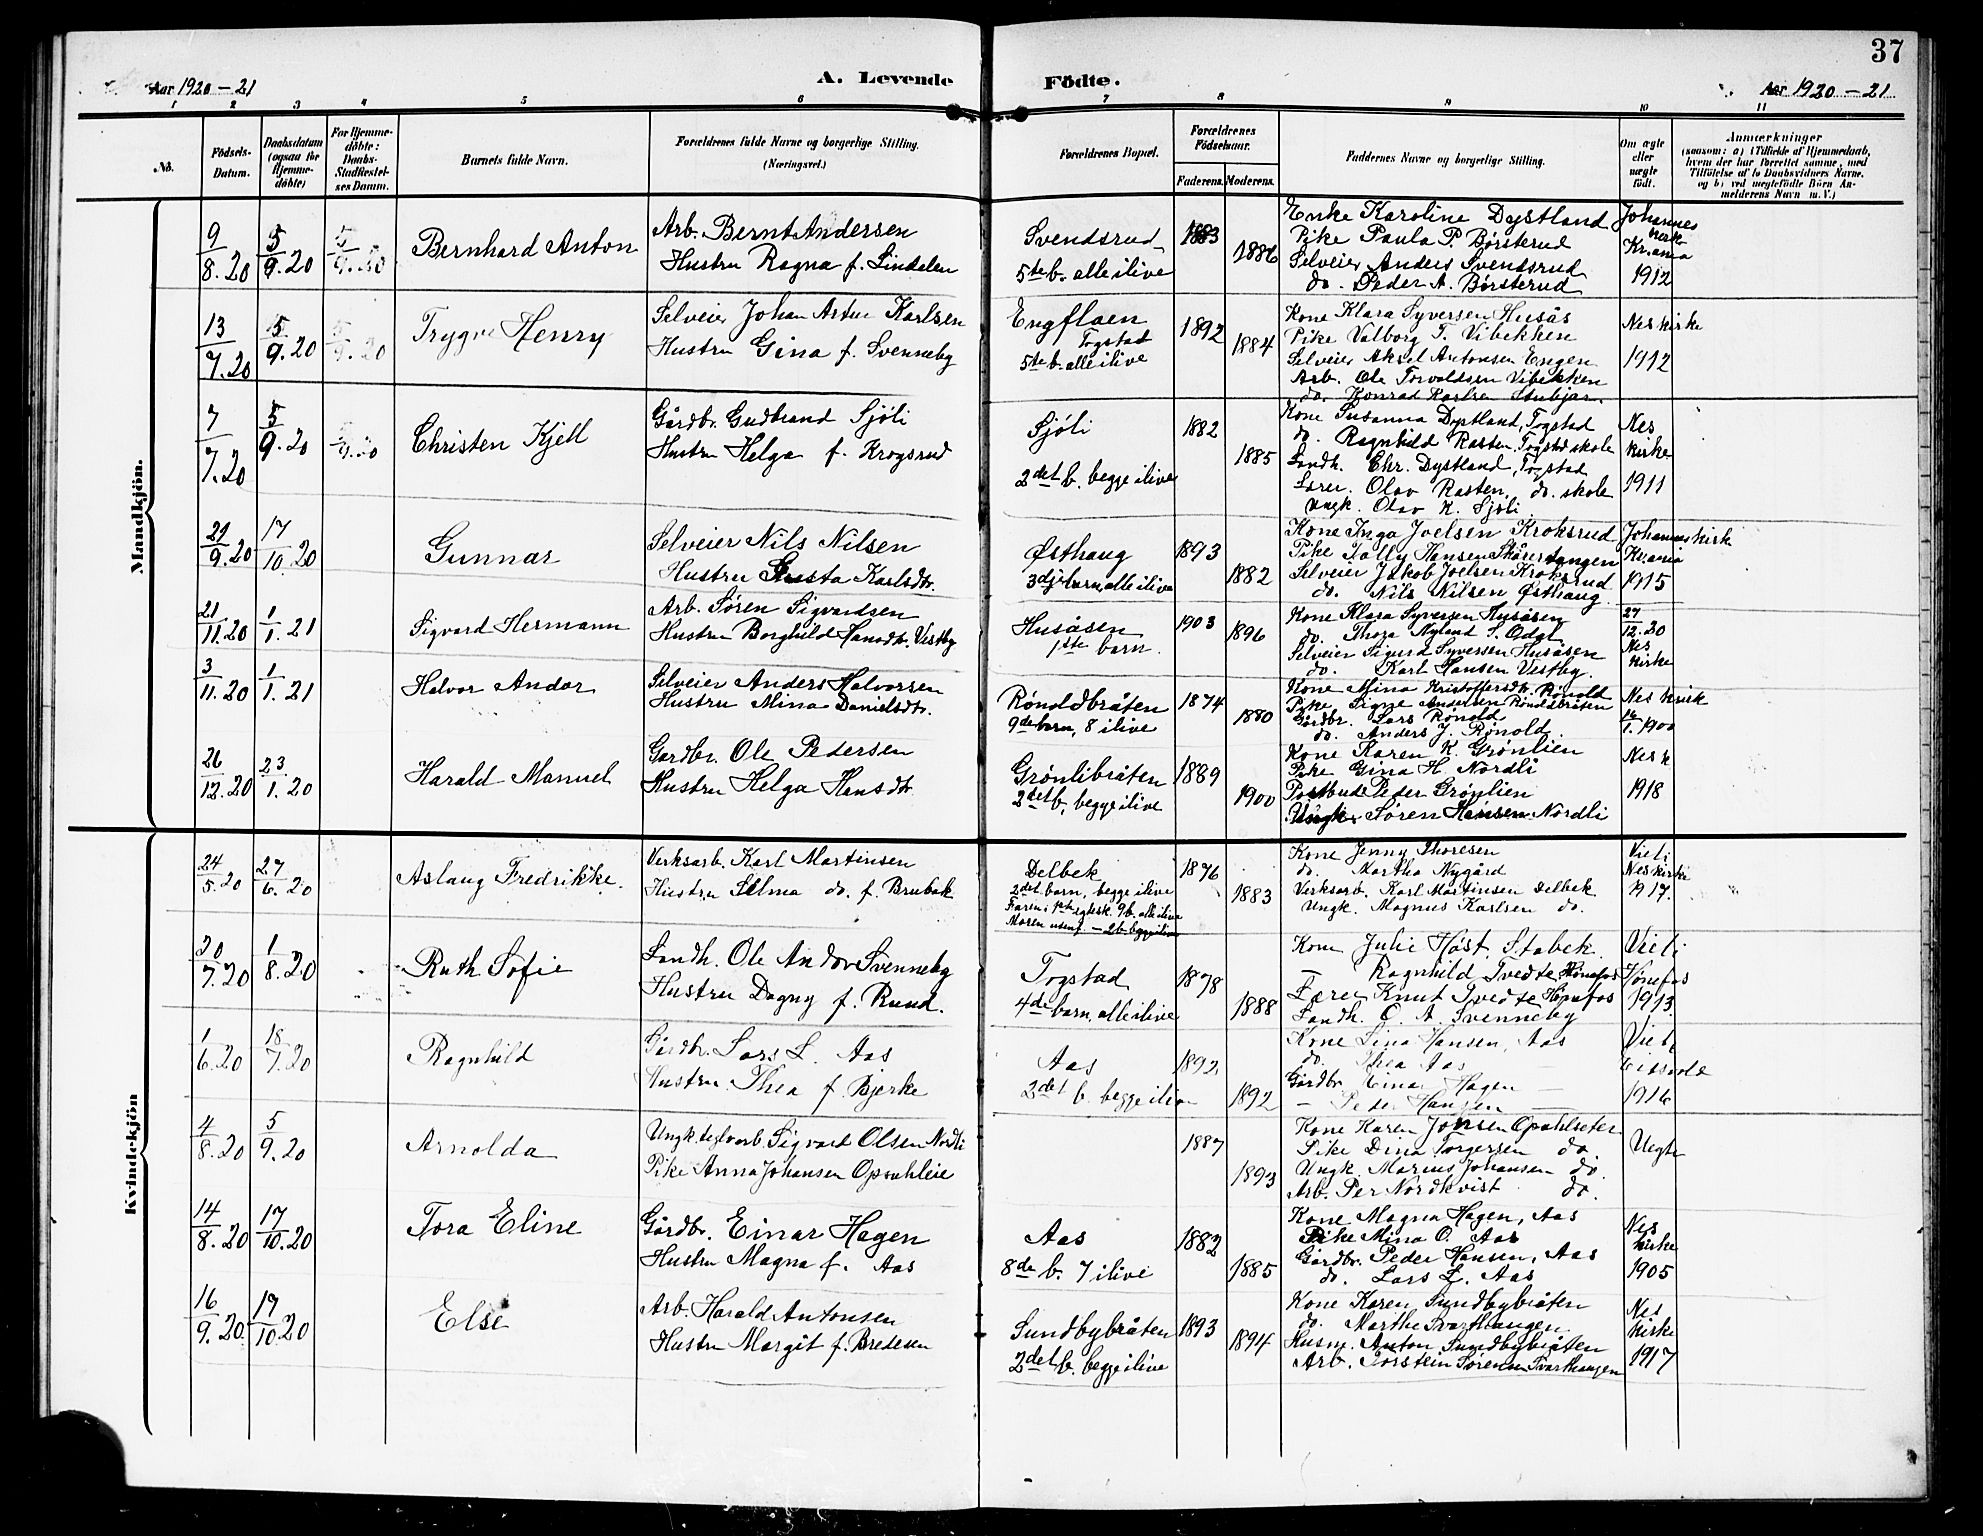 37
Aar 1920-21
A. Levende
Födte.
Aar 1920-21
1 2 3 4 5 6 7 8 9 10 11
No.
Födsels-
Datum.
Daabsdatum
(ogsaa for
Hjemme-
döbte)
For Hjemme-
döbte:
Daabs-
Stadfæstel-
ses Datum.
Barnets fulde Navn.
Forældrenes fulde Navne og borgerlige Stilling.
(Næringsvei.)
Forældrenes Bopæl.
Forældrenes
Födselsaar.
Faderens. Moderens.
Faddernes Navne og borgerlige Stilling.
Om ægte
eller
uægte
födt.
Anmærkninger
(saasom: a) i Tilfælde af Hjemmedaab,
hvem der har forrettet samme, med
Tilföielse af to Daabsvidners Navne,
og b) ved uægtefödte Börn An-
melderens Navn m. V.)
Mandkjön.
9/8.20 5/9.20 5/9.20
Bernhard Anton
Arb. Bernt Andersen
Hustru Ragna f. Lindelen
Svendsrud
5te b. alle ilive
1883
1886
Enke Karoline Dystland
Pike Paula P. Børsterud
Selveier Anders Svendsrud
do. Peder A. Børsterud
Johannes
kirk
Kr.ania
1912
13/7.20 5/9.20 5/9.20
Trygve Henry
Selveier Johan Artur Karlsen
Hustru Gina f. Svenneby
Engflaen
Togstad
5te b. alle ilive
1892
1884
Kone Klara Syversen Husås
Pike Valborg T. Vibekken
Selveier Aksel Antonsen Engen
Arb. Ole Torvaldsen Vibekken
do. Konrad Karlsen Stubjar.
Nes kirke
1912
7/7.20 5/9.20 5/9.20
Christen Kjell
Gårdbr. Gudbrand Sjöli
Hustru Helga f. Krogsrud
Sjöli
2det b. begge ilive
1882
1885
Kone Susanna Dystland, Togstad
do. Ragnhild Rasten, Togstad skole
Landh. Chr. Dystland, Togstad
Lærer. Olav Rasten, do. skole
Ungk. Olav K. Sjöli
Nes
kirke
1911
29/9.20 17/10.20
Gunnar
Selveier Nils Nilsen
Hustru Gusta Karlsdtr.
Østhaug
3dje barn, alle ilive
1893
1882
Kone Inga Joelsen Kroksrud
Pike Jally Hansen Skårertangen
Selveier Jakob Joelsen Kroksrud
do. Nils Nilsen Østhaug
Johannes kirk
Kr.ania
1915
21/11.20 1/1.21
Sigvard Hermann
Arb. Sören Sigvardsen
Hustru Borghild Hansdtr. Vestby
Husåsen
1ste barn.
1903
1896
Kone Klara Syversen Husåsen
do. Thora Nyland S. Odal
Selveier Sigurd Syversen Husåsen
do. Karl Hansen Vestby.
27/12.20
Nes
kirke
3/11.20 1/1.21
Halvor Andor
Selveier Anders Halvorsen
Hustru Mina Danielsdtr.
Rönoldbråten
9de barn, 8 ilive
1874
1880
Kone Mina Kristoffersdtr. Rönold
Pike Signe Andersen Rönoldbråten
Gårdbr. Lars Rönold
do. Anders J. Rönold.
Nes kirk
1900
26/12.20 23/1.20
Harald Manuel
Gardbr. Ole Pedersen
Hustru Helga Hansdtr
Grönlibråten
2det b. begge ilive
1889
1900
Kone Karen K Grönlien
Pike Gina H. Nordli
Postbud Peder Grönlien
Ungk. Sören Hansen Nordli
Nes k
1918
Kvindekjön
24/5.20 27/6.20
Aslaug Fredrikke.
Verksarb. Karl Martinsen
Hustru Selma do. f. Brubak
Delbek
2det barn, begge ilive
Faren i 1ste egtesk. 9 b. alle ilive
Moren utenf. - 2 b. begge ilive
1876
1883
Kone Jenny Thoresen
do. Martha Nygård
Verksarb. Karl Martinsen Delbek
Ungk. Magnus Karlsen do.
Viet i
Nes kirke
1917.
20/7.20 1/8.20
Ruth Sofie
Landh. Ole Andor Svenneby
Hustru Dagny f. Rund.
Togstad
4de barn, alle ilive
1878
1888
Kone Julie Høst, Stabek.
— Ragnhild Tvedte Hönefos
Lærer Knut Tvedte Hönefos
Landh. O. A. Svenneby
Viet i
Hönefos
1913.
1/6.20 18/7.20
Ragnhild
Gårdbr. Lars L. Aas
Hustru Thea f. Bjerke
Aas
2det b. begge ilive
1892
1892
Kone Lina Hansen, Aas
do. Thea Aas —
Gårdbr. Einar Hagen —
— Peder Hansen —
Viet i
Eidsvold
1916
4/8.20 5/9.20
Arnolda
Sigvard Olsen Nordli
Pike Anna Johansen Opsahleie
1887
1893
Kone Karen Jonsen Opahlseter
Pike Dina Torgersen do.
Ungk. Marius Johansen do.
Arb. Per Nordkvist do.
Uegte
14/8.20 17/10.20
Tora Eline
Gårdbr. Einar Hagen
Hustru Magna f. Aas
Aas
8de b. 7 ilive
1882
1885
Kone Magna Hagen, Aas
Pike Mina O. Aas
Gårdbr. Peder Hansen, Aas
do. Lars L. Aas
Nes
kirke
1905
16/9.20 17/10.20
Else
Arb. Harald Antonsen
Hustru Margit f. Bredesen
Sundbybråten
2det b. begge ilive
1893
1894
Kone Karen Sundbybråten
do. Marthe Svarthaugen
Husm. Anton Sundbybråten
Arb. Torstein Sörensen Svarthaugen
Nes
kirke
1917